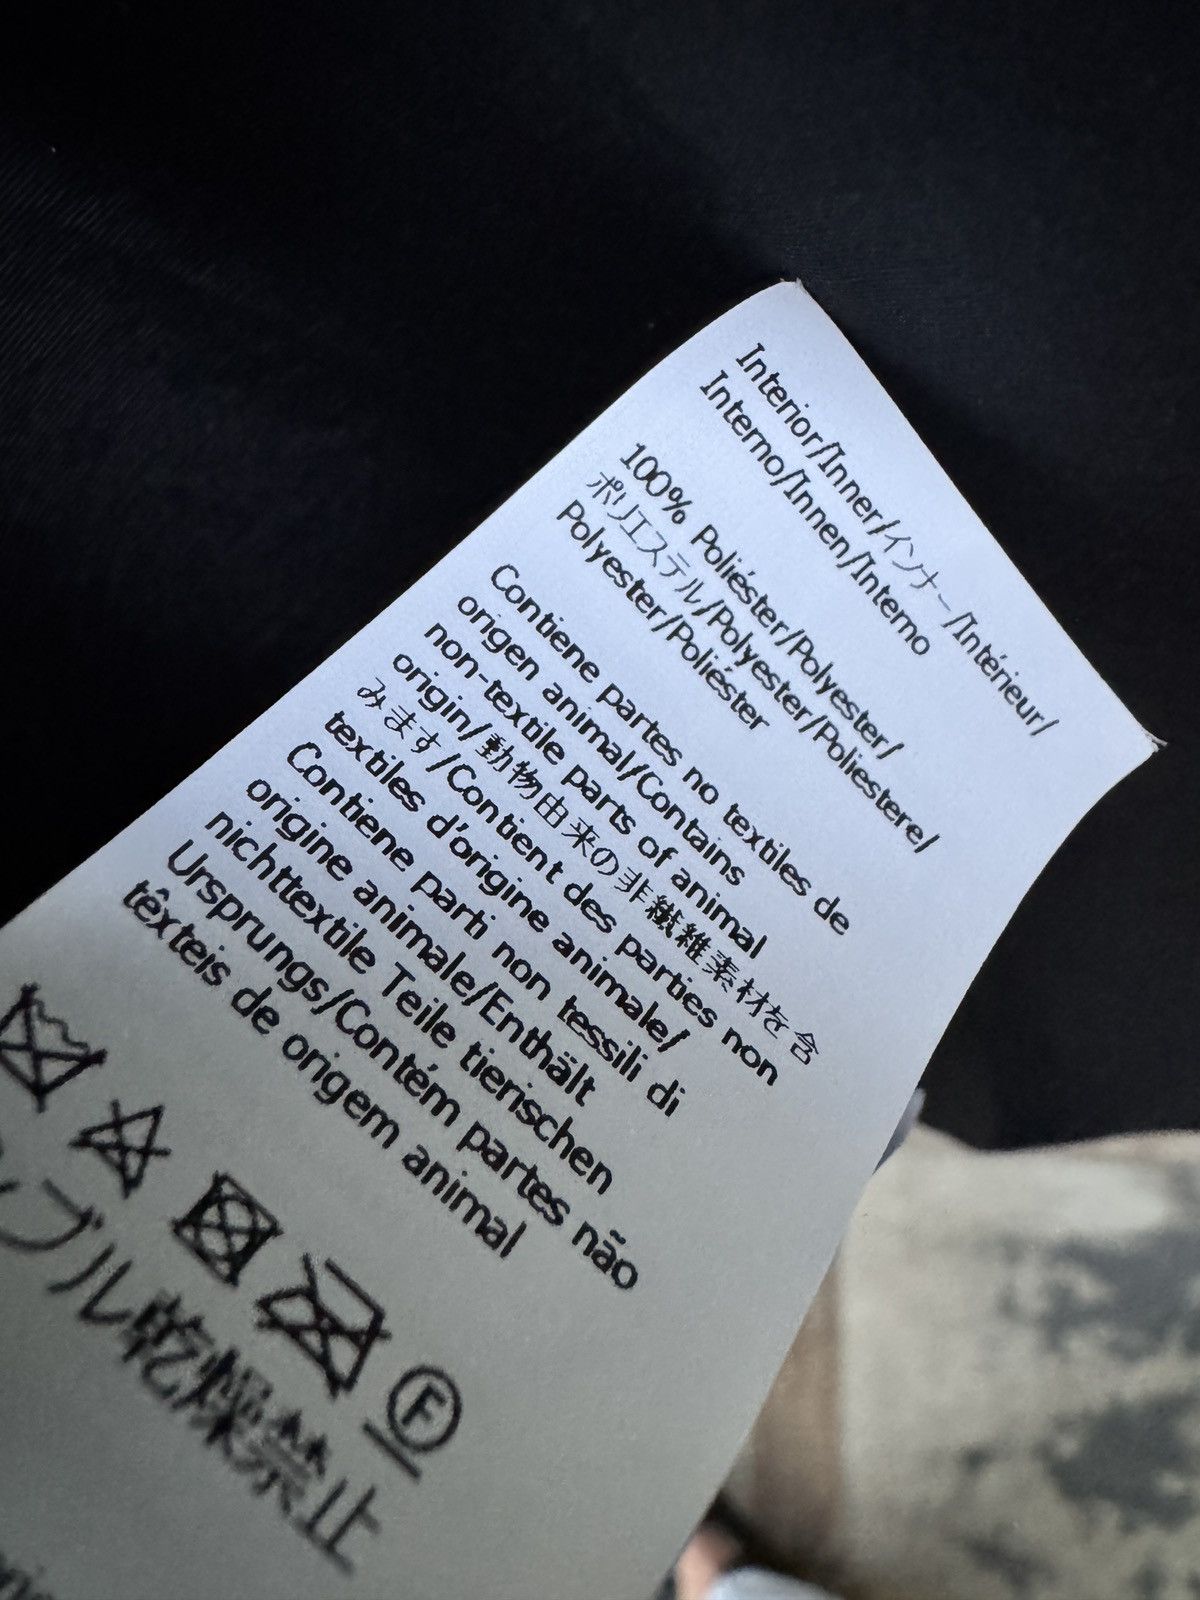 Interior/Inner/インナー/Intérieur/
Interno/Innen/Interno
100% Poliéster/Polyester/
ポリエステル/Polyester/Poliestere/
Polyester/Poliéster
Contiene partes no textiles de
origen animal/Contains
non-textile parts of animal
origin/動物由来の非繊維素材を含
みます/Contient des parties non
textiles d'origine animale/
Contiene parti non tessili di
origine animale/Enthält
nichttextile Teile tierischen
Ursprungs/Contém partes não
têxteis de origem animal
F
ンブル乾燥禁止